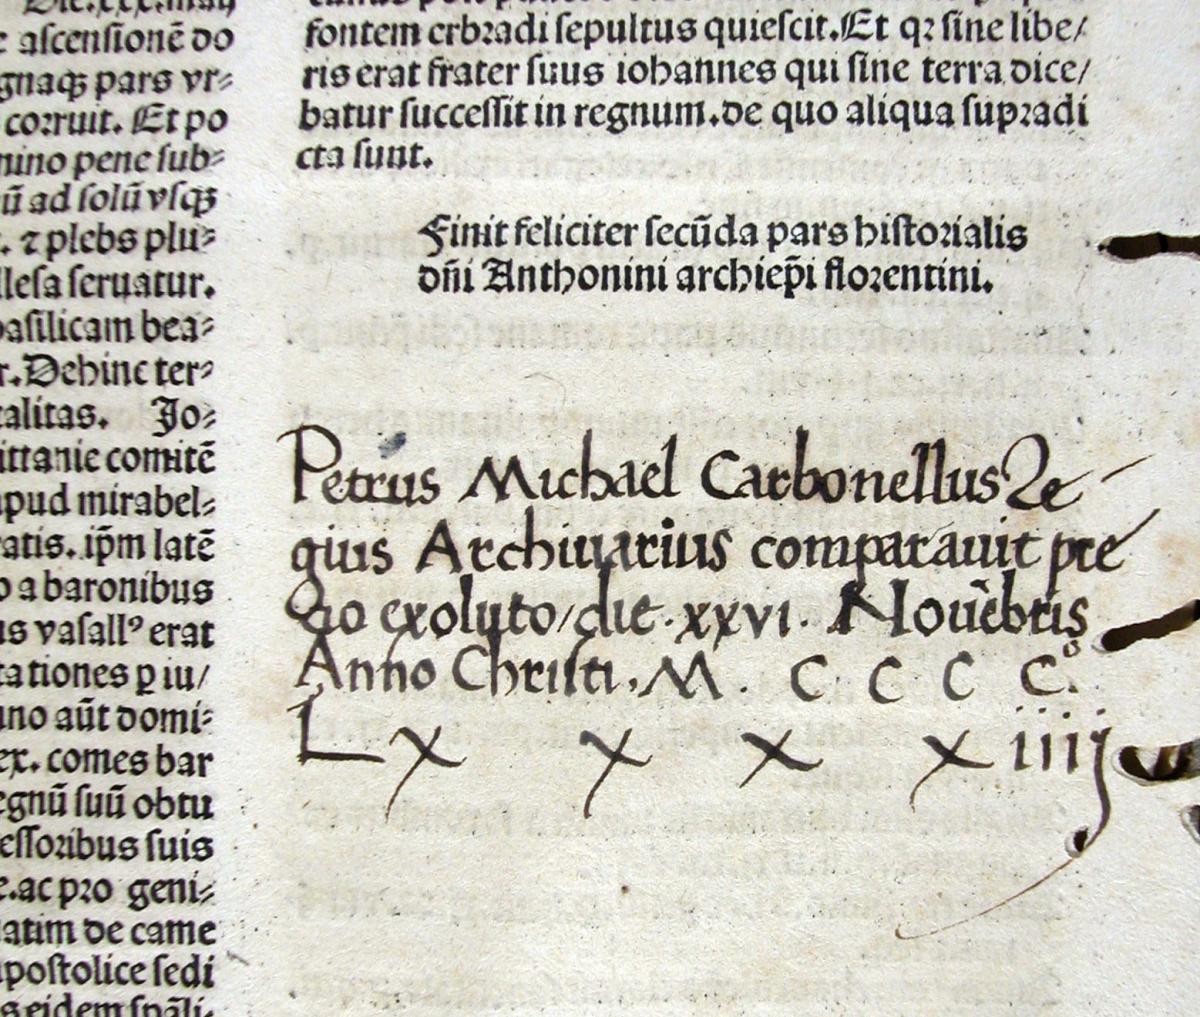 Die.xxx.maij
c ascensionē do
gnaqꝫ pars vr⸗
corruit. Et po
mino pene sub⸗
ū ad solū vsqꝫ
. ⁊ plebs plu⸗
llesa seruatur.
basilicam bea⸗
r.Dehinc ter⸗
talitas. Jo⸗
ittanie comitē
apud mirabel⸗
ratis. ip̄m latē
o a baronibus
us vasallꝰ erat
tationes ꝑ iu/
uno aūt domi⸗
ex. comes bar
egnū suū obtu
essoribus suis
e.ac pro geni⸗
latim de came
apostolice sedi
s eidem spāli⸗
fontem erbradi sepultus quiescit.Et qꝛ sine libe/
ris erat frater suus iohannes qui sine terra dice/
batur successit in regnum.de quo aliqua supradi
cta sunt.
Finit feliciter secūda pars historialis
dn̄i Anthonini archiep̄i florentini.
Petrus Michael Carbonellus Re
gius Archiuarius comparauit pre
cio exoluto/die.xxvi. Nouēbris
Anno Christi.M. C C C C.º
L x x x x iiij